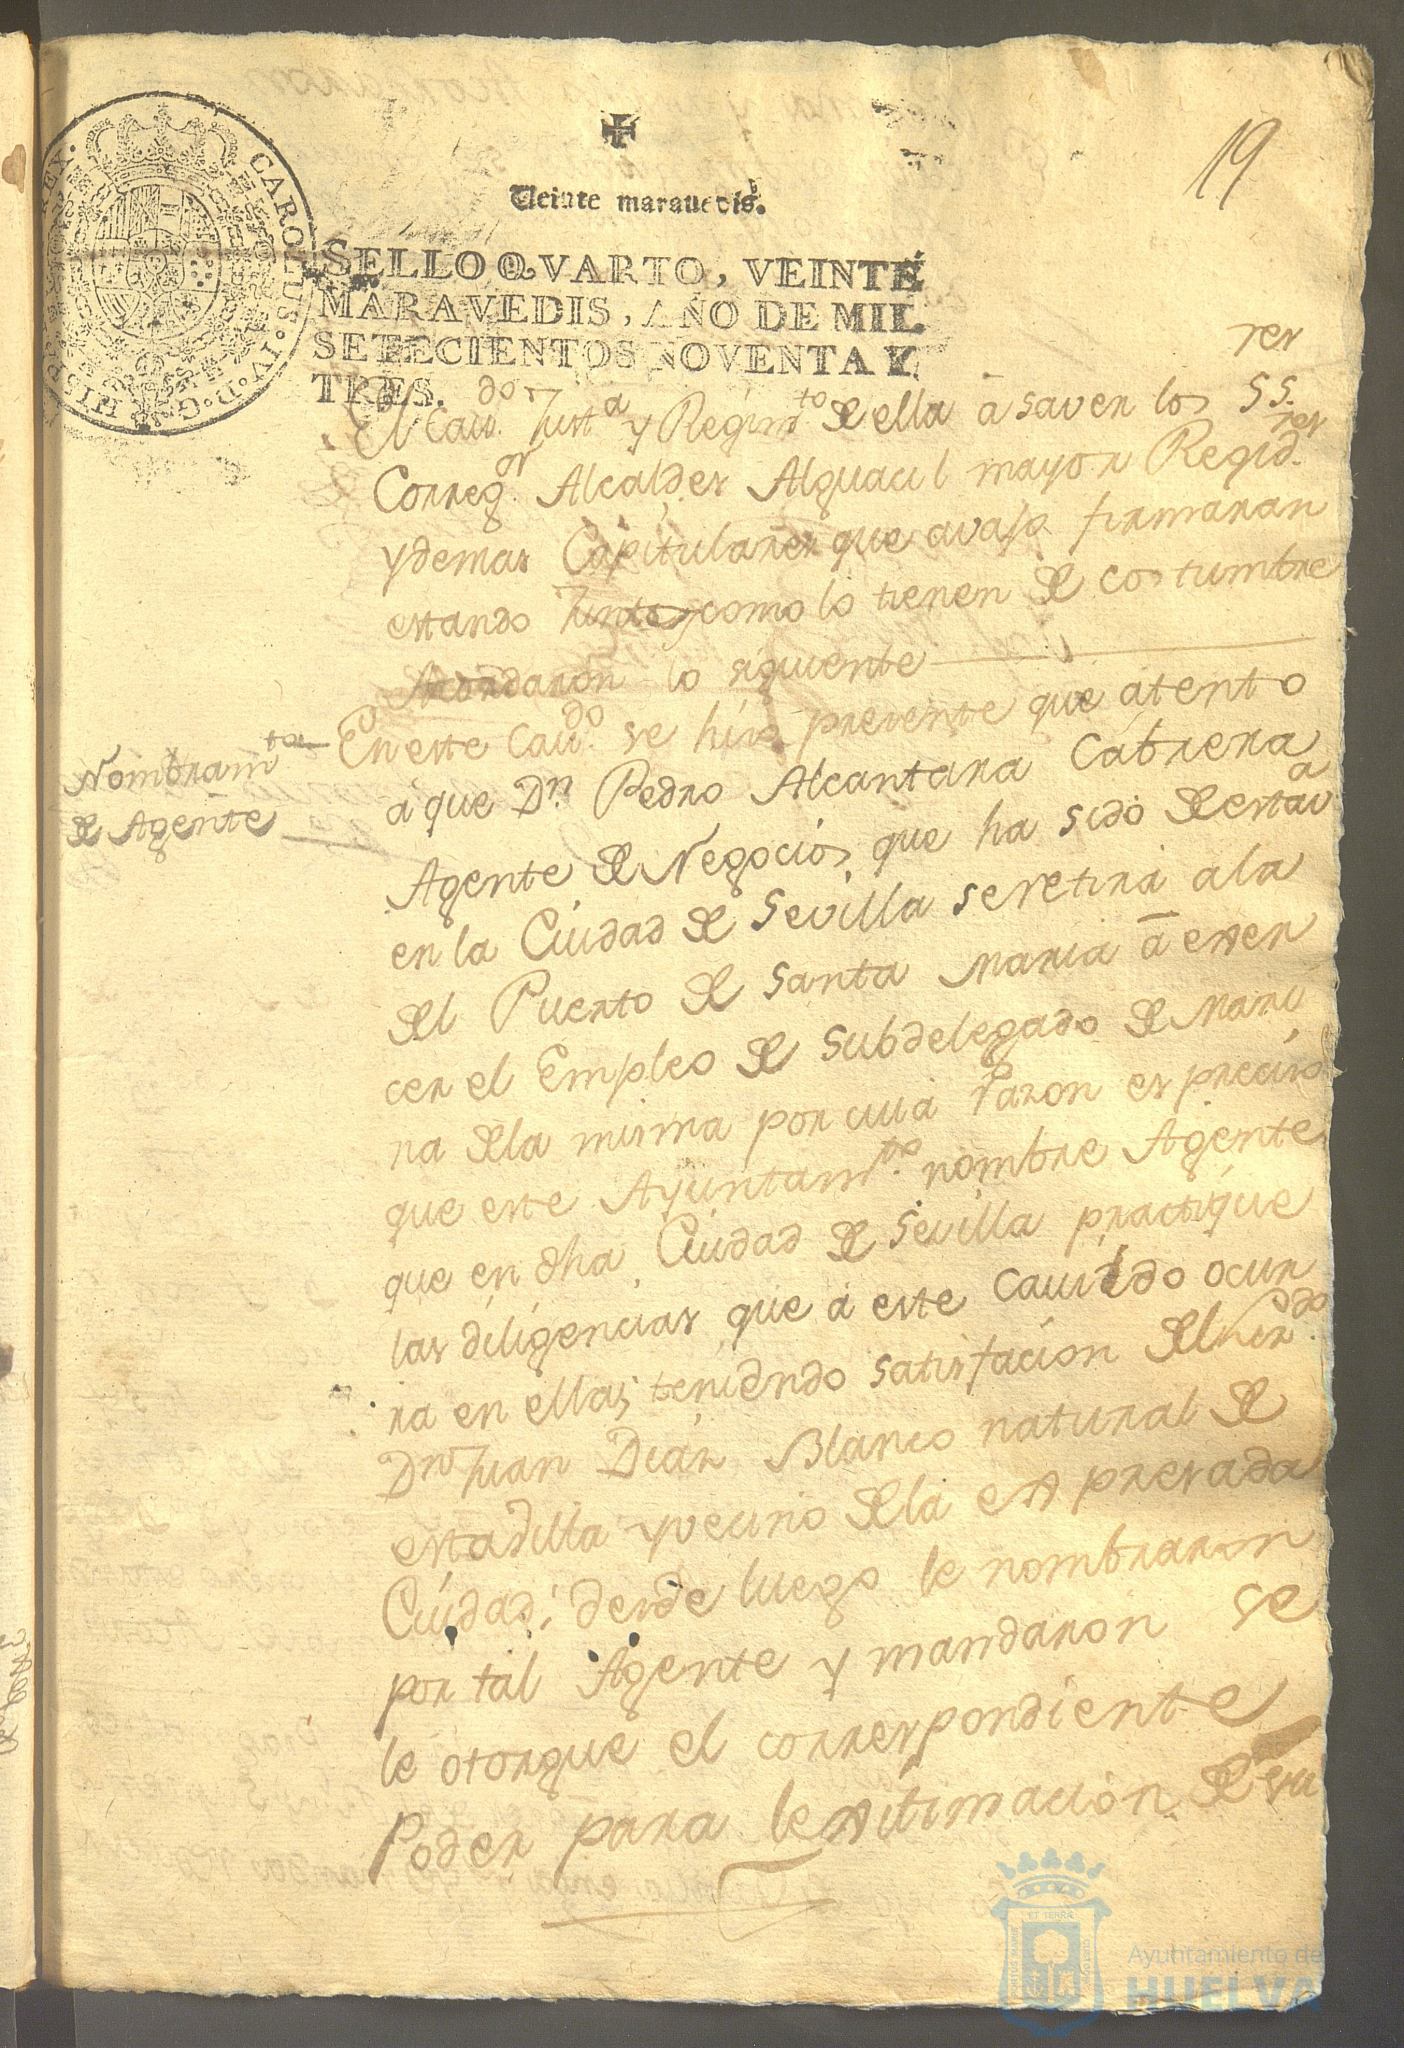 19
Veinte maravedis.
SELLO QVARTO, VEINTE
MARAVEDIS, AÑO DE MIL
SETECIENTOS NOVENTA Y
TRES.
CAROLUS·IV·D·G· HISP REX·
El Cav.do Just.a y Regim.to de ella â saver los SS.res
Correg.or Alcaldes Alguacil mayor Regid.res
y demas Capitulares que avajo firmaran
estando Juntos como lo tienen de costumbre
Acordaron lo siguiente
Nombram.to
de Agente
En este Cav.do se hizo presente que atento
a que D.n Pedro Alcantara Cabrera
Agente de Negocios que ha sido de esta v.a
en la Ciudad de Sevilla se retira a la
del Puerto de Santa Maria â exer
cer el Empleo de Subdelegado de Mari
na de la misma por cuia razon es preciso
que este Ayuntam.to nombre Agente
que en dha Ciudad de Sevilla practique
las diligencias que â este Cavildo ocur
ra en ella; teniendo satisfacion del
D.n Juan Diaz Blanco natural de
esta villa y vecino de la expresada
Ciudad; desde luego le nombraron
por tal Agente y mandaron se
le otorgue el correspondiente
Poder para lexitimación de su
Ayuntamiento de
HUELVA